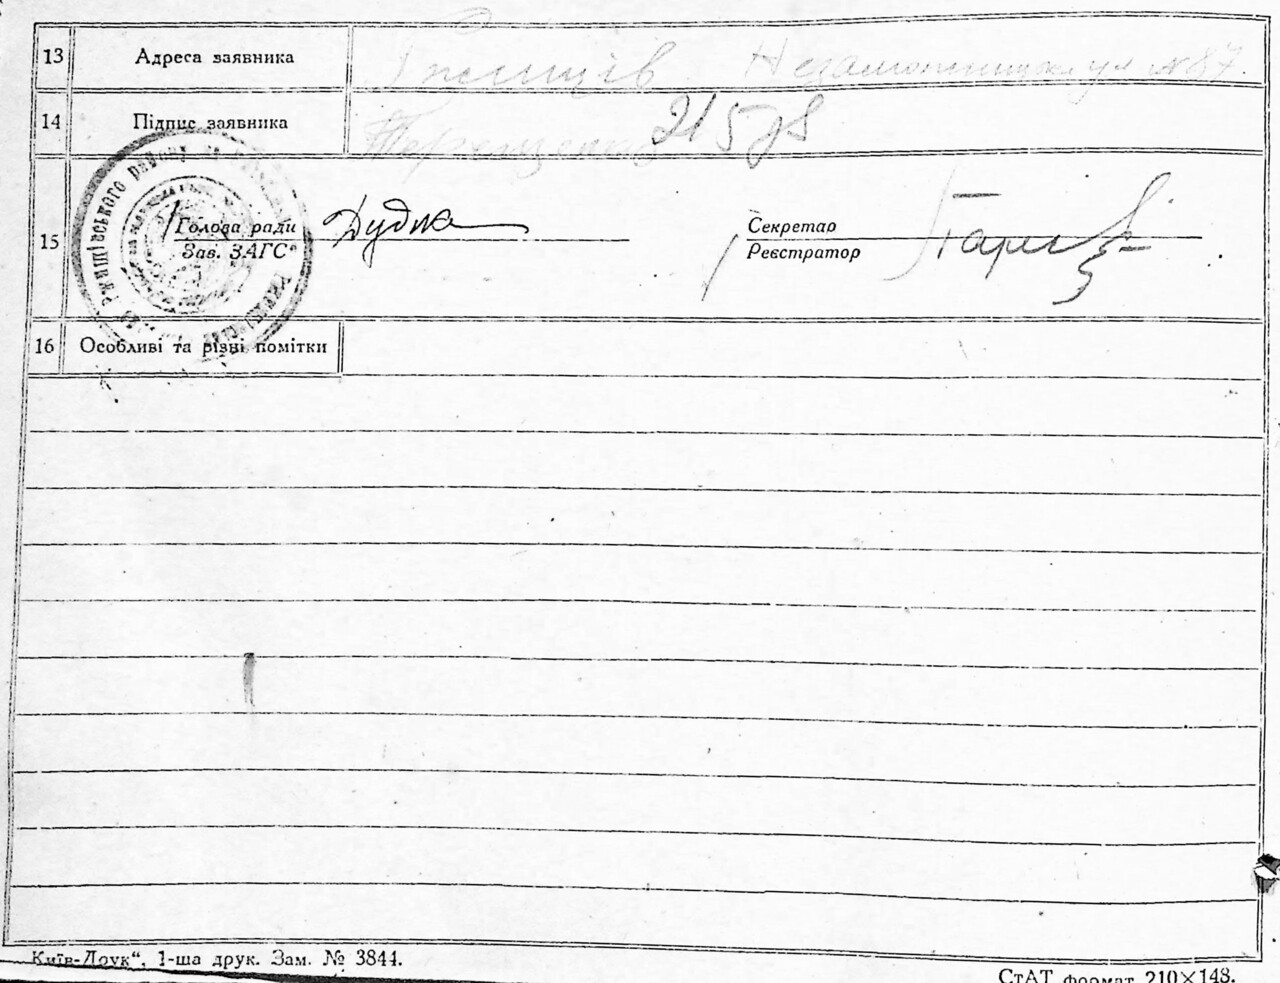 13 Адреса заявника Ржищів Незаможницька ул №87.
14 Підпис заявника Терещенко
15 Голова ради
Зав. ЗАГС
Секретар
Реєстратор
16 Особливі та різні помітки
Київ-Друк“, 1-ша друк. Зам. № 3844.
СтАТ формат 210×148.